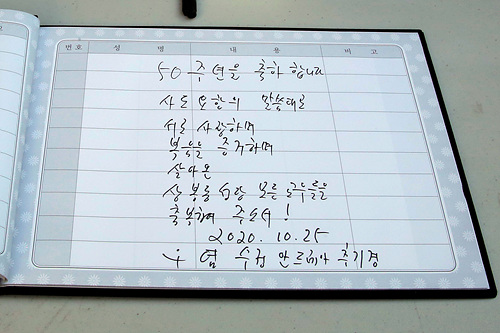 번호 성 명 내 용 비 고
50 주년을 축하 합니다
사도 요한의 말씀대로
서로 사랑하며
복음을 증거하며
살아온
상봉동성당 모든 교우들을
축복하여 주소서!
2020. 10. 25
염 수정 안드레아 추기경